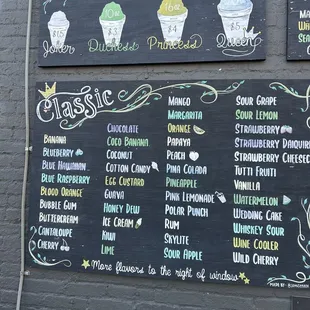 $15
Joker
10oz
$3
Duchess
16oz
$4
Princess
$5
Queen
Classic
Banana
Blueberry
Blue Hawaiian
Blue Raspberry
Blood Orange
Bubble Gum
Buttercream
Cantaloupe
Cherry
Chocolate
Coco Banana
Coconut
Cotton Candy
Egg Custard
Guava
Honey Dew
Ice Cream
Kiwi
Lime
Mango
Margarita
Orange
Papaya
Peach
Pina Colada
Pineapple
Pink Lemonade
Polar Punch
Rum
Skylite
Sour Apple
Sour Grape
Sour Lemon
Strawberry
Strawberry Daiquiri
Strawberry Cheesec
Tutti Frutti
Vanilla
Watermelon
Wedding Cake
Whiskey Sour
Wine Cooler
Wild Cherry
More flavors to the right of window